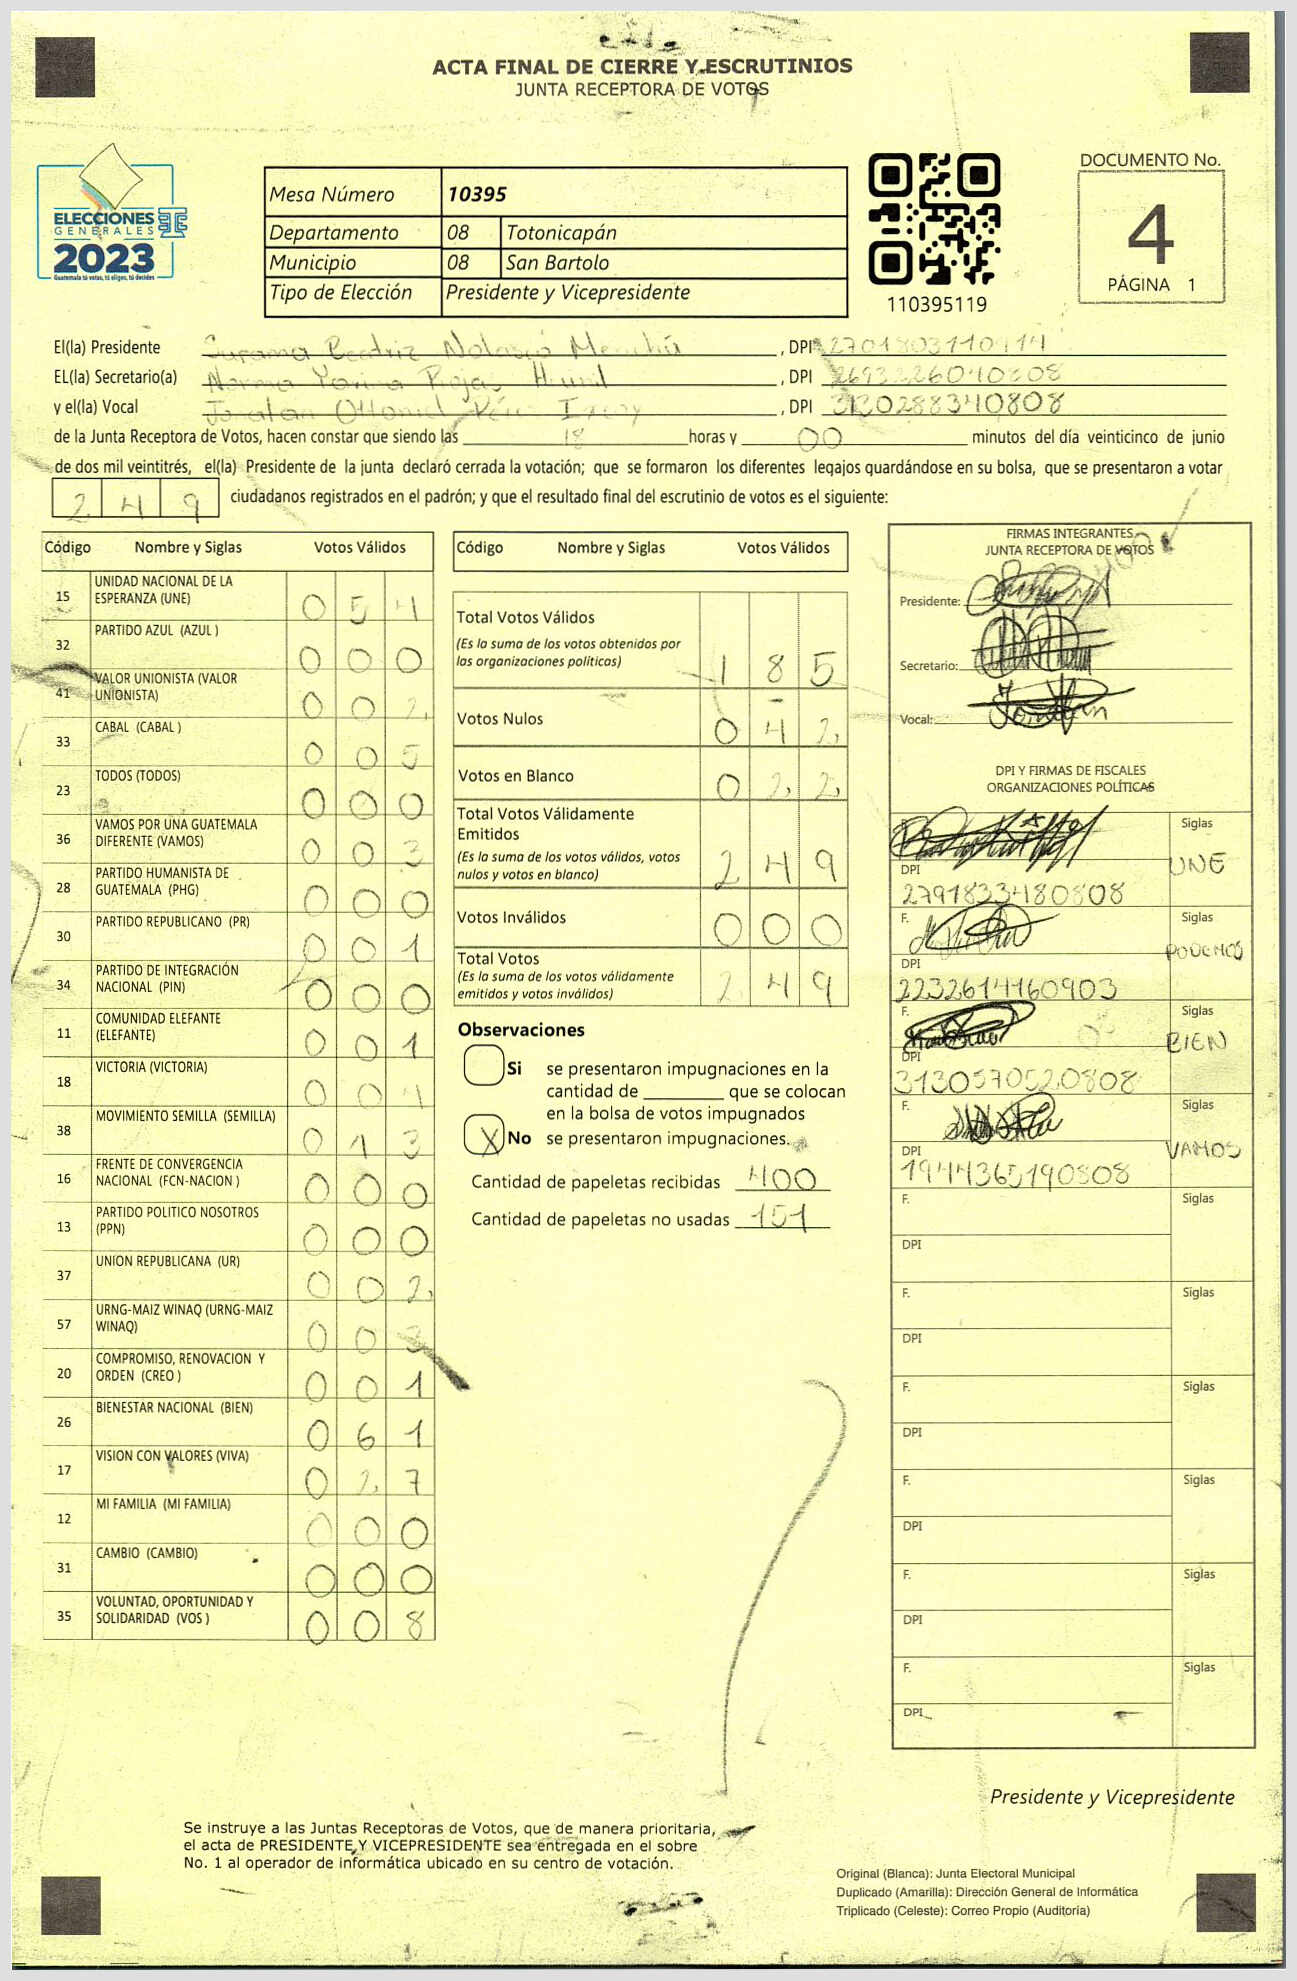 ACTA FINAL DE CIERRE Y ESCRUTINIOS
JUNTA RECEPTORA DE VOTOS
ELECCIONES
GENERALES
2023
Guatemala tú votas, tú eliges, tú decides
Mesa Número 10395
Departamento 08 Totonicapán
Municipio 08 San Bartolo
Tipo de Elección Presidente y Vicepresidente
110395119
DOCUMENTO No.
4
PÁGINA 1
El(la) Presidente Surama Beatriz Nolasco Menchú, DPI
EL(la) Secretario(a) Norma Rojas, DPI 2693226040808
y el(la) Vocal Jonatan Ottoniel Pérez, DPI 3130288340808
de la Junta Receptora de Votos, hacen constar que siendo las 18 horas y 00 minutos del día veinticinco de junio
de dos mil veintitrés, el(la) Presidente de la junta declaró cerrada la votación; que se formaron los diferentes legajos guardándose en su bolsa, que se presentaron a votar
249 ciudadanos registrados en el padrón; y que el resultado final del escrutinio de votos es el siguiente:
Código Nombre y Siglas Votos Válidos
15 UNIDAD NACIONAL DE LA ESPERANZA (UNE) 054
32 PARTIDO AZUL (AZUL ) 000
41 VALOR UNIONISTA (VALOR UNIONISTA) 002
33 CABAL (CABAL ) 005
23 TODOS (TODOS) 000
36 VAMOS POR UNA GUATEMALA DIFERENTE (VAMOS) 003
28 PARTIDO HUMANISTA DE GUATEMALA (PHG) 000
30 PARTIDO REPUBLICANO (PR) 001
34 PARTIDO DE INTEGRACIÓN NACIONAL (PIN) 000
11 COMUNIDAD ELEFANTE (ELEFANTE) 001
18 VICTORIA (VICTORIA) 004
38 MOVIMIENTO SEMILLA (SEMILLA) 013
16 FRENTE DE CONVERGENCIA NACIONAL (FCN-NACION ) 000
13 PARTIDO POLITICO NOSOTROS (PPN) 000
37 UNION REPUBLICANA (UR) 002
57 URNG-MAIZ WINAQ (URNG-MAIZ WINAQ) 003
20 COMPROMISO, RENOVACION Y ORDEN (CREO ) 001
26 BIENESTAR NACIONAL (BIEN) 061
17 VISION CON VALORES (VIVA) 027
12 MI FAMILIA (MI FAMILIA) 000
31 CAMBIO (CAMBIO) 000
35 VOLUNTAD, OPORTUNIDAD Y SOLIDARIDAD (VOS ) 008
Código Nombre y Siglas Votos Válidos
Total Votos Válidos
(Es la suma de los votos obtenidos por
las organizaciones políticas) 185
Votos Nulos 042
Votos en Blanco 022
Total Votos Válidamente
Emitidos
(Es la suma de los votos válidos, votos
nulos y votos en blanco) 249
Votos Inválidos 000
Total Votos
(Es la suma de los votos válidamente
emitidos y votos inválidos) 249
Observaciones
Si se presentaron impugnaciones en la
cantidad de ________ que se colocan
en la bolsa de votos impugnados
X No se presentaron impugnaciones.
Cantidad de papeletas recibidas 400
Cantidad de papeletas no usadas 151
FIRMAS INTEGRANTES
JUNTA RECEPTORA DE VOTOS
Presidente:
Secretario:
Vocal:
DPI Y FIRMAS DE FISCALES
ORGANIZACIONES POLÍTICAS
F. Siglas
UNE
DPI
2791833480808
F. Siglas
PODEMOS
DPI
2232614160903
F. Siglas
BIEN
DPI
3130570520808
F. Siglas
VAMOS
DPI
1944365190808
F. Siglas
DPI
F. Siglas
DPI
F. Siglas
DPI
F. Siglas
DPI
F. Siglas
DPI
F. Siglas
DPI
Presidente y Vicepresidente
Se instruye a las Juntas Receptoras de Votos, que de manera prioritaria,
el acta de PRESIDENTE Y VICEPRESIDENTE sea entregada en el sobre
No. 1 al operador de informática ubicado en su centro de votación.
Original (Blanca): Junta Electoral Municipal
Duplicado (Amarilla): Dirección General de Informática
Triplicado (Celeste): Correo Propio (Auditoría)